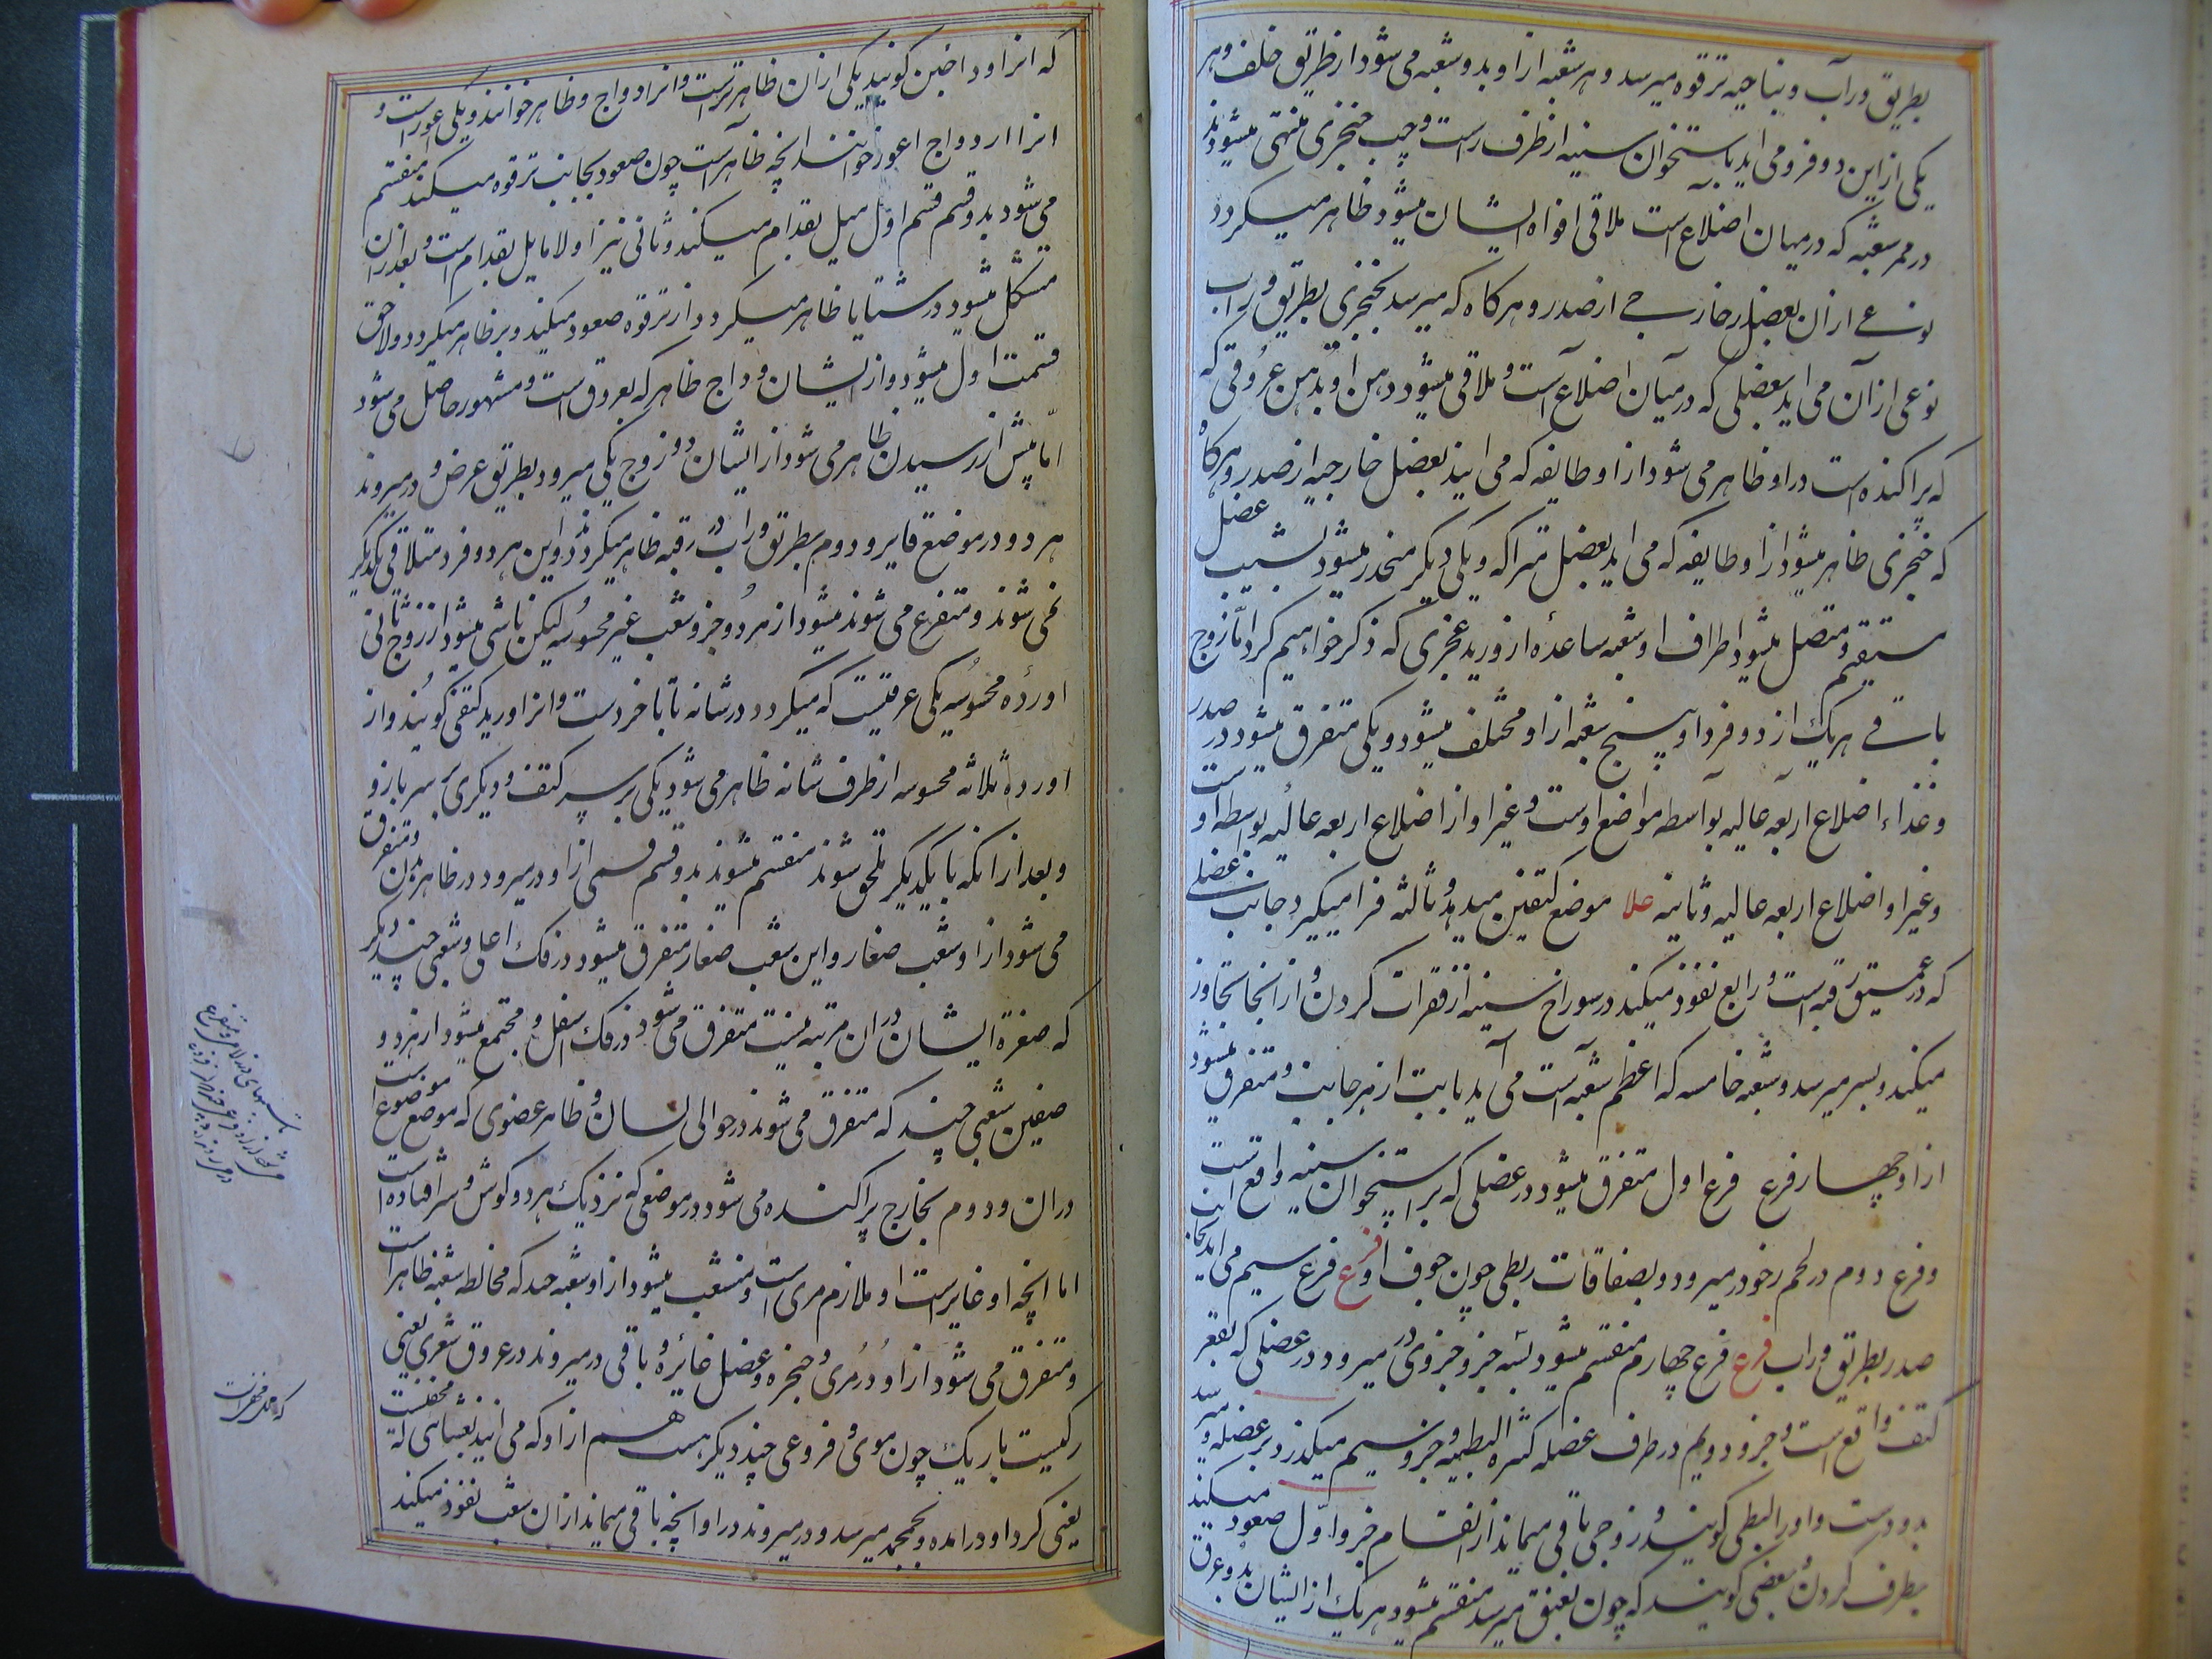 بطریق وراب و بناحیه ترقوه میرسد و هر شعبه ازا و بدو شعبه می شود از طریق خلف و هر
یکی از این دو فرو می اید باستخوان سینه از طرف راست و چپ خنجری منتهی میشود
در ممر شعبه که در میان اضلاع است ملاقی افواه ایشان میشود ظاهر میکردد
نوعی از ان بعضل خارجی از صدر و هرکاه که میرسد بخنجری بطریق وراب
نوعی از آن می اید بعضلی که در میان اضلاع است و ملاقی میشود دهن او بدهن عروقی که
که پراکنده است در او ظاهر می شود از او طایفه که می ایند بعضل خارجیه از صدر و هرکاه
که خنجری ظاهر میشود از او طایفه که می اید بعضل متراکه و یکی دیکر منحدر میشود بشیب عضل
مستقیم و متصل میشود اطراف او شعبه ساعده از ورید عجزی که ذکر خواهیم کرد اما زوج
باقی هر یک از دو فرد او پنج شعبه ازاو مختلف میشود و یکی متفرق میشود در صدر
و غذاء اضلاع اربعه عالیه بواسطه مواضع اوست و غیر او از اضلاع اربعه عالیه بواسطه او
و غیر او اضلاع اربعه عالیه و ثانیه علا موضع کتفین میدهد و ثالثه فرا میکیرد جانب عضلی
که در عمیق رقبه است و رابع نفوذ میکند در سوراخ سینه از فقرات کردن و از انجا تجاوز
میکند و بسر میرسد و شعبه خامسه که اعظم شعبه است می آید بابت از هر جانب و متفرق میشود
از او چهار فرع فرع اول متفرق میشود در عضلی که بر استخوان سینه واقع است
و فرع دوم در لحم رخو در میرود و بصفاقات ربطی چون جوف او فرع فرع سیم می اید بجانب
صدر بطریق وراب فرع فرع چهارم منقسم میشود بسه جزو جزوی در میرود در عضلی که بقعر
کتف واقع است و جزو دویم در طرف عضله کثره البطیه و جزو سیم میکذرد بر عضله و میرسد
بدو دست و او را البطی کویند و زوجی باقی میماند از انقسام جزو اول صعود میکند
بطرف کردن و بعضی کویند که چون بعنق میرسد منقسم میشود هر یک از ایشان بدو عرق
که انرا وداجین کویند یکی ازان ظاهرترست و انرا دواج و ظاهر خوانند و یکی غورست و
انرا ار دواج اعور خوانند انچه ظاهرست چون صعود بجانب ترقوه میکند منقسم
می شود بدو قسم قسم اول میل بقدام میکند و ثانی نیز اولا مایل بقدام است و بعد ازان
متشکل میشود در شتایا ظاهر میکردد و از ترقوه صعود میکند و بر ظاهر میکردد و لاحق
قسمت اول میشود و از ایشان وداج ظاهر که بعروق است و مشهور حاصل می شود
اما پیش از رسیدن ظاهر می شود از ایشان دو زوج یکی میرود بطریق عرض و در میروند
هر دو در موضع غایر و دوم بطریق وراب در رقبه ظاهر میکردد و این هر دو فرد متلاقی یکدیکر
نمی شوند و متفرع می شوند میشود از هر دو جزو شعب غیر محسوسه لیکن ناشی میشود از زوج ثانی
اورده محسوسه یکی عرقیست که میکردد در شانه تا باخر دست و انرا ورید کتفی کویند و از
اورده ثلاثه محسوسه از طرف شانه ظاهر می شود یکی بر سر کتف و دیکری بر سر بازو
و بعد از انکه با یکدیکر ملحق شوند منقسم میشوند بدو قسم قسمی از او در میرود در ظاهر بدن و متفرق
می شود از او شعب صغار و این شعب صغار متفرق میشود در فک اعلی و شعبی چند دیکر
که صغرة ایشان دران مرتبه نیست متفرق می شود در فک اسفل و مجتمع میشود از هر دو
صفین شعبی چند که متفرق می شوند در حوالی لسان و ظاهر عضوی که موضع موضوعست
دران و دوم بخارج پراکنده می شود در موضعی که نزدیک هر دو کوش و سر افتاده است
اما انچه او غایر است او ملازم مری است و منشعب میشود از او شعبه چند که مخالط شعبه ظاهر است
و متفرق می شود از او در مری و حنجره و عضل غایره و باقی در میروند در عروق شعری یعنی
رکیست باریک چون موی و فروعی چند دیکر هست هم از او که می ایند بغشای که مخفیست
یعنی کرد او در امده و بجمجمه میرسد و در میروند در او انچه باقی میماند ازان شعب نفوذ میکند